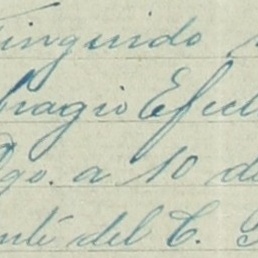 tinguido
fragio Efect
Dgo. a 10 de
ente del C.